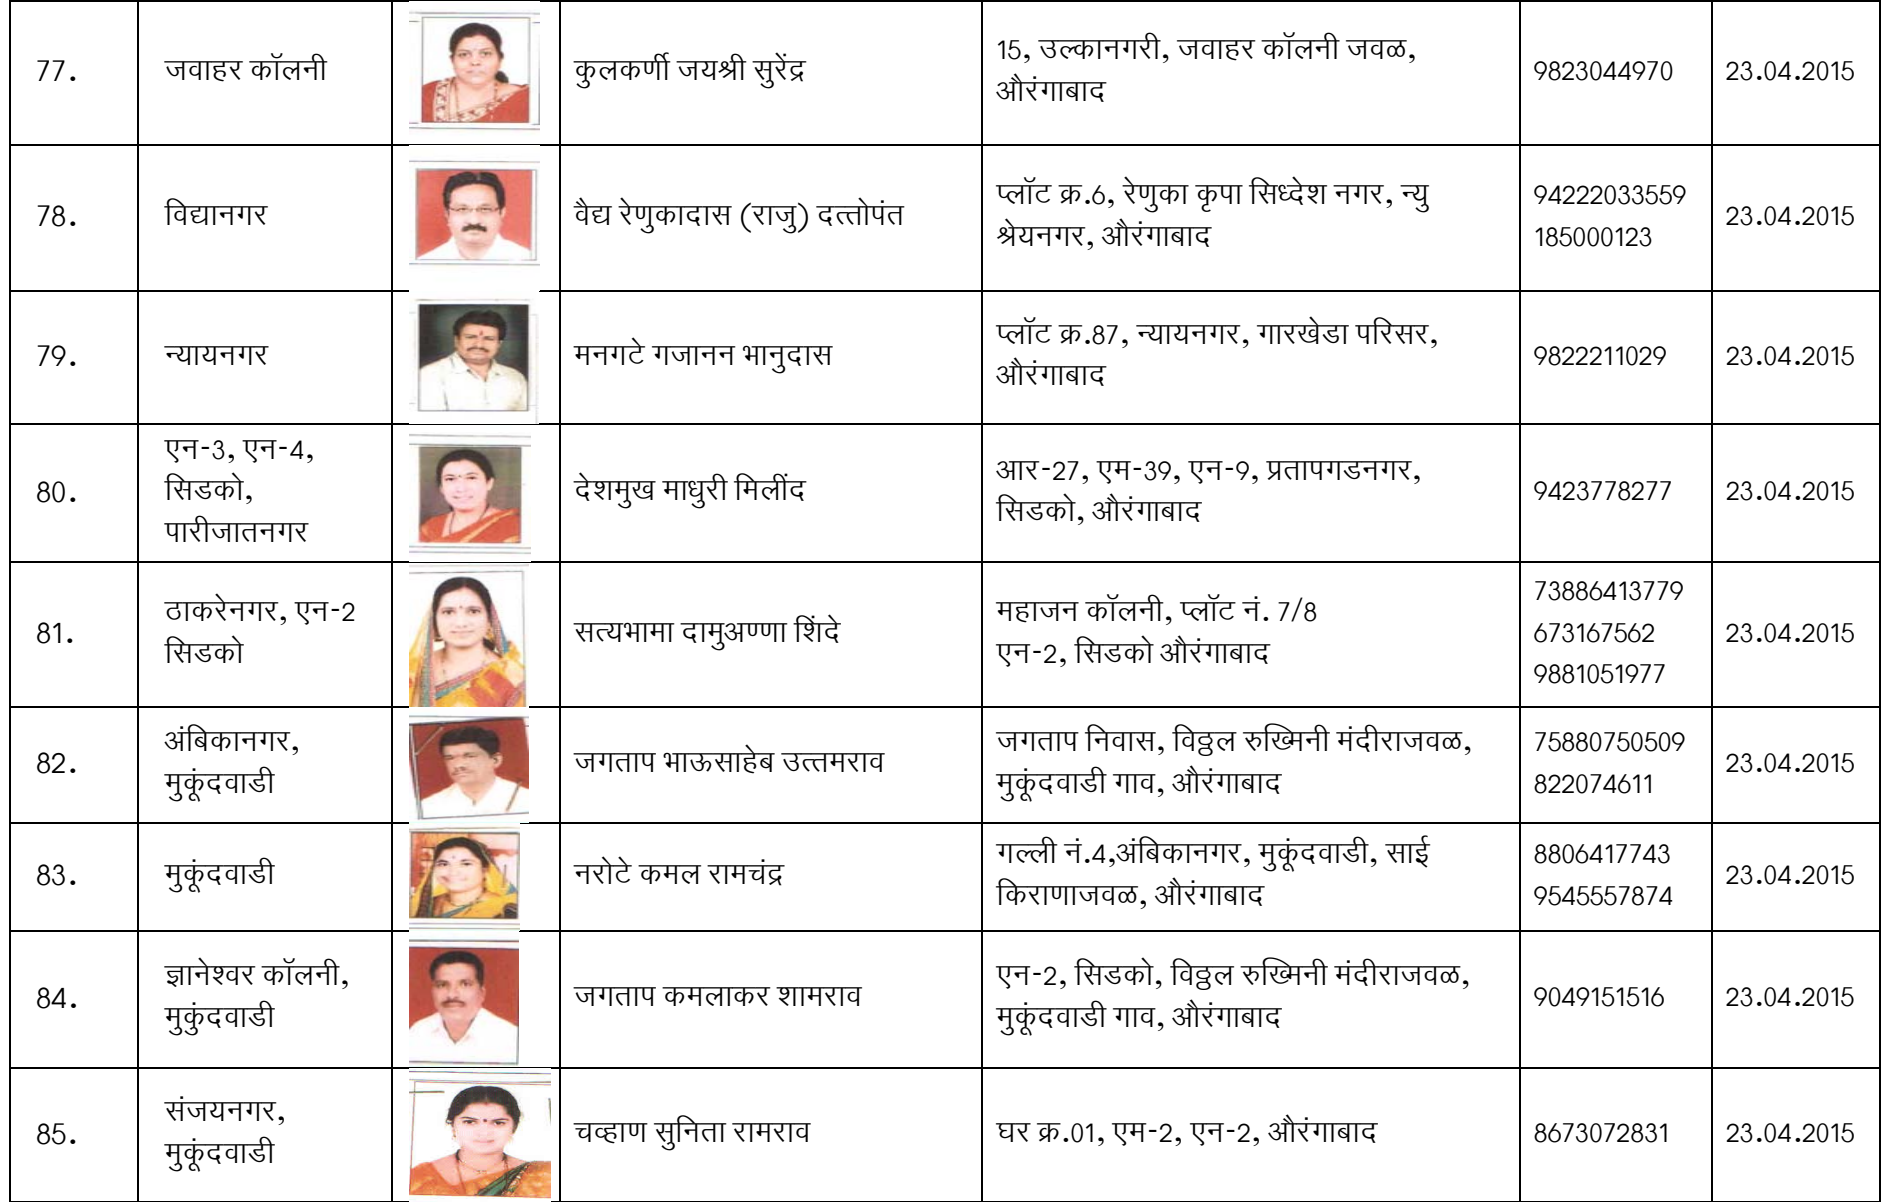 77.
जवाहर कॉलनी
कुलकर्णी जयश्री सुरेंद्र
15, उल्कानगरी, जवाहर कॉलनी जवळ,
औरंगाबाद
9823044970
23.04.2015
78.
विद्यानगर
वैद्य रेणुकादास (राजु) दत्तोपंत
प्लॉट क्र.6, रेणुका कृपा सिध्देश नगर, न्यु
श्रेयनगर, औरंगाबाद
94222033559
185000123
23.04.2015
79.
न्यायनगर
मनगटे गजानन भानुदास
प्लॉट क्र.87, न्यायनगर, गारखेडा परिसर,
औरंगाबाद
9822211029
23.04.2015
80.
एन-3, एन-4,
सिडको,
पारीजातनगर
देशमुख माधुरी मिलींद
आर-27, एम-39, एन-9, प्रतापगडनगर,
सिडको, औरंगाबाद
9423778277
23.04.2015
81.
ठाकरेनगर, एन-2
सिडको
सत्यभामा दामुअण्णा शिंदे
महाजन कॉलनी, प्लॉट नं. 7/8
एन-2, सिडको औरंगाबाद
73886413779
673167562
9881051977
23.04.2015
82.
अंबिकानगर,
मुकूंदवाडी
जगताप भाऊसाहेब उत्तमराव
जगताप निवास, विठ्ठल रुख्मिनी मंदीराजवळ,
मुकूंदवाडी गाव, औरंगाबाद
75880750509
822074611
23.04.2015
83.
मुकूंदवाडी
नरोटे कमल रामचंद्र
गल्ली नं.4,अंबिकानगर, मुकूंदवाडी, साई
किराणाजवळ, औरंगाबाद
8806417743
9545557874
23.04.2015
84.
ज्ञानेश्वर कॉलनी,
मुकुंदवाडी
जगताप कमलाकर शामराव
एन-2, सिडको, विठ्ठल रुख्मिनी मंदीराजवळ,
मुकूंदवाडी गाव, औरंगाबाद
9049151516
23.04.2015
85.
संजयनगर,
मुकूंदवाडी
चव्हाण सुनिता रामराव
घर क्र.01, एम-2, एन-2, औरंगाबाद
8673072831
23.04.2015